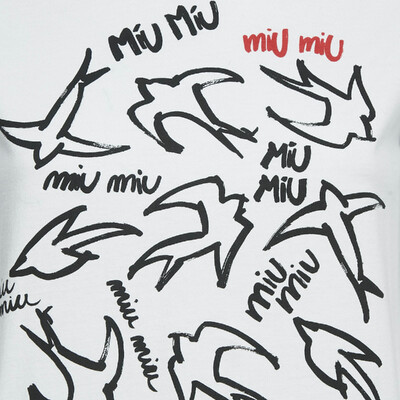 Míu Míu
miu miu
Miu
Miu
miu miu
miu
miu
miu miu
miu